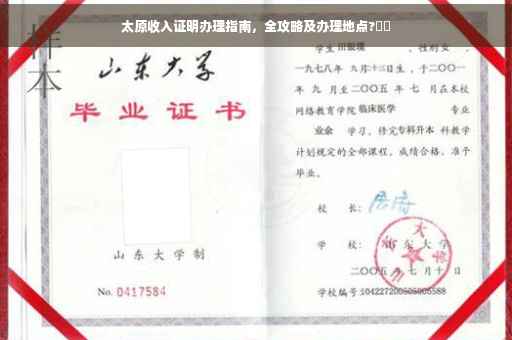 太原收入证明办理指南，全攻略及办理地点?
样本
山东大学
毕业证书
山东大学制
No. 0417584
学生 田银瑛 ，性别女，
一九七八年 九月十三日生，于二〇〇一
年 九 月至二〇〇五 年 七 月在本校
网络教育学院 临床医学 专业
业余 学习，修完专科升本 科教学
计划规定的全部课程，成绩合格，准予
毕业。
校 长：
学 校： 山东大学
二〇〇五 年 七 月 十 日
学校编号:104227200505005588